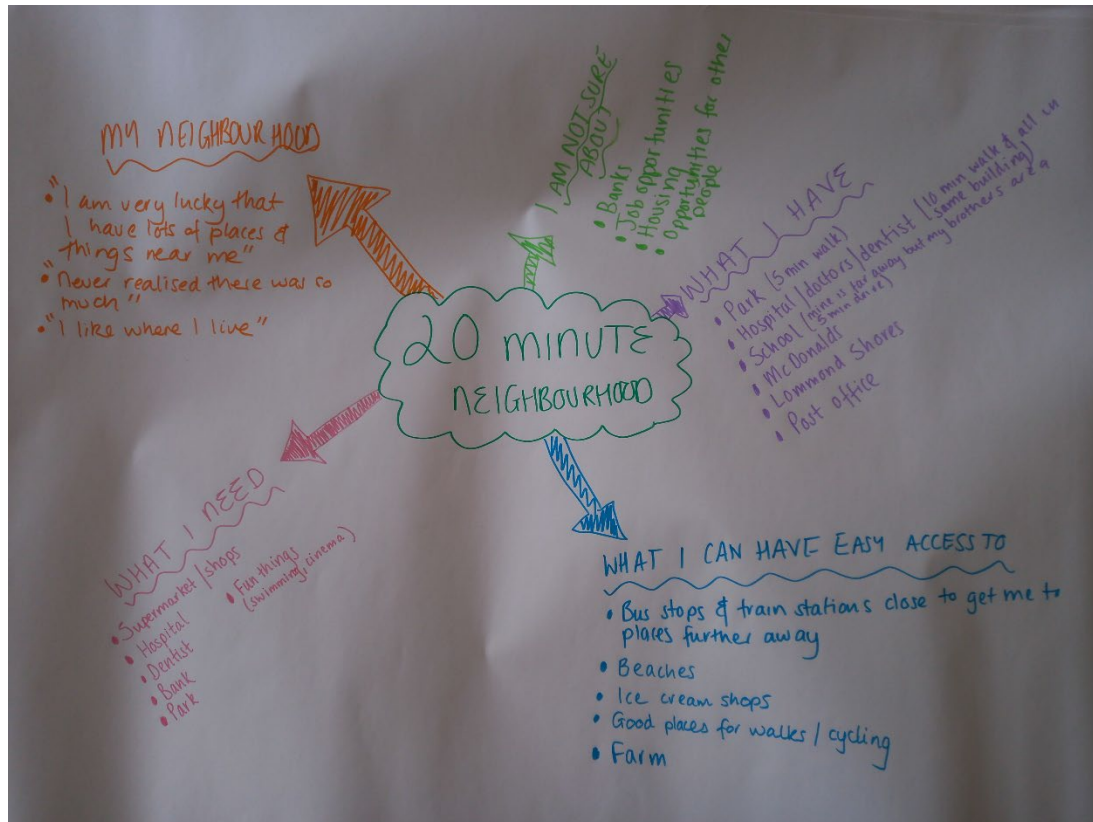 20 MINUTE
NEIGHBOURHOOD
MY NEIGHBOURHOOD
• "I am very lucky that
I have lots of places &
things near me"
• "Never realised there was so
much"
• "I like where I live"
I AM NOT SURE
ABOUT
• Banks
• Job opportunities
• Housing
• Opportunities for other
people
WHAT I HAVE
• Park (5 min walk)
• Hospital/doctors/dentist (10 min walk & all in
same building)
• School (mine is far away but my brothers are a
5 min drive)
• McDonalds
• Lommond Shores
• Post office
WHAT I NEED
• Supermarket/shops
• Hospital
• Dentist
• Bank
• Park
• Fun things
(swimming, cinema)
WHAT I CAN HAVE EASY ACCESS TO
• Bus stops & train stations close to get me to
places further away
• Beaches
• Ice cream shops
• Good places for walks / cycling
• Farm